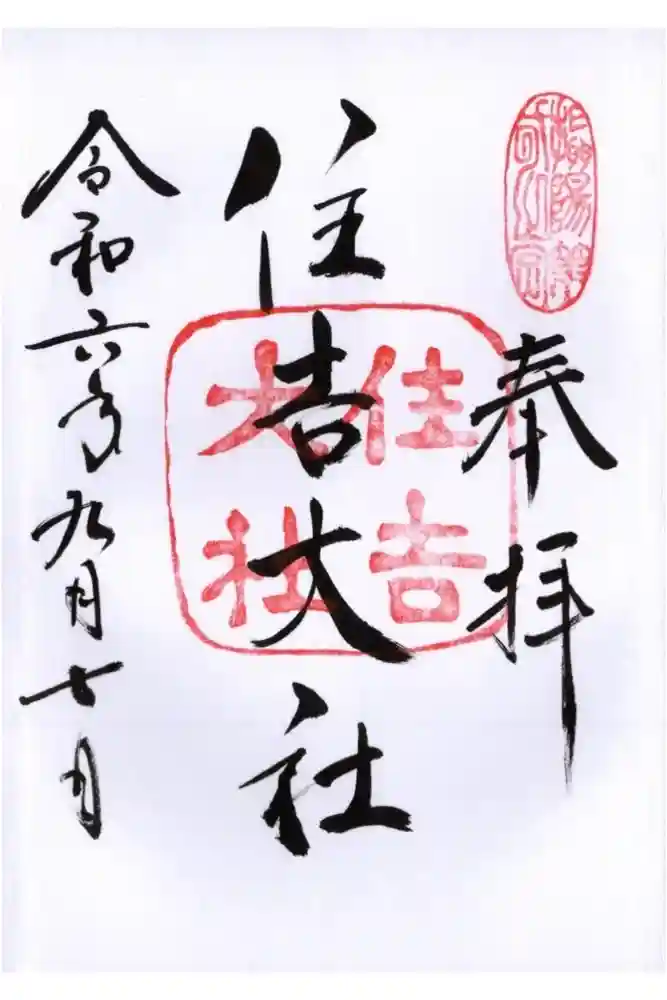 奉拝
住吉大社
住吉
大社
令和六年九月七日